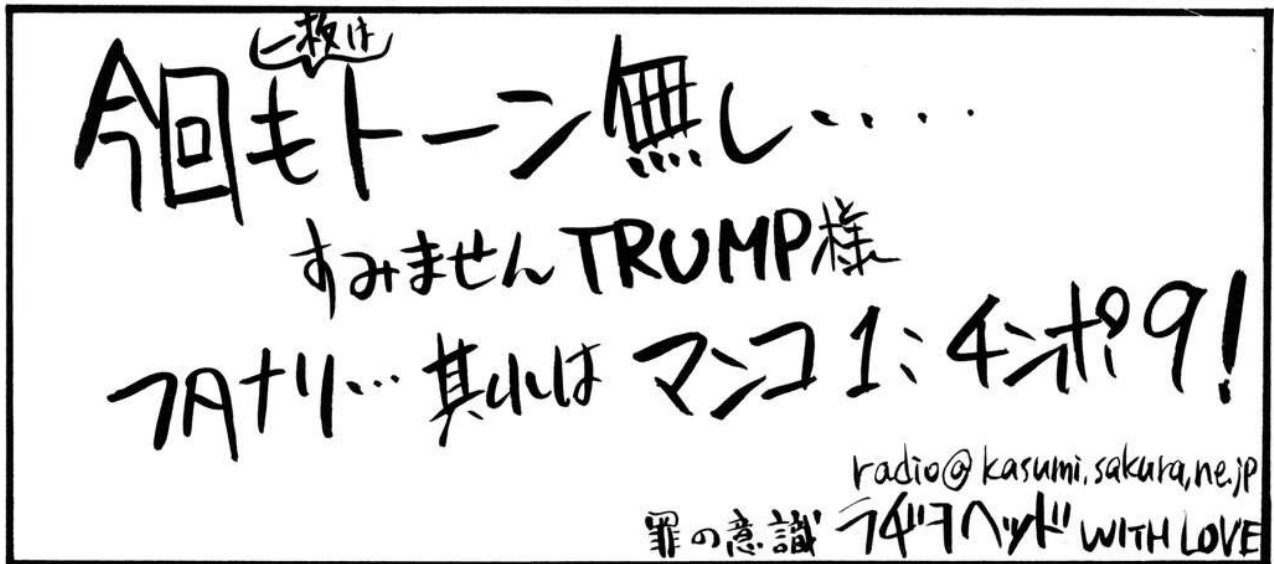 一枚は
今回もトーン無し....
すみませんTRUMP様
フタナリ…其れは マンコ1:チンポ9!
radio@kasumi.sakura.ne.jp
罪の意識 ラヂヲヘッド WITH LOVE